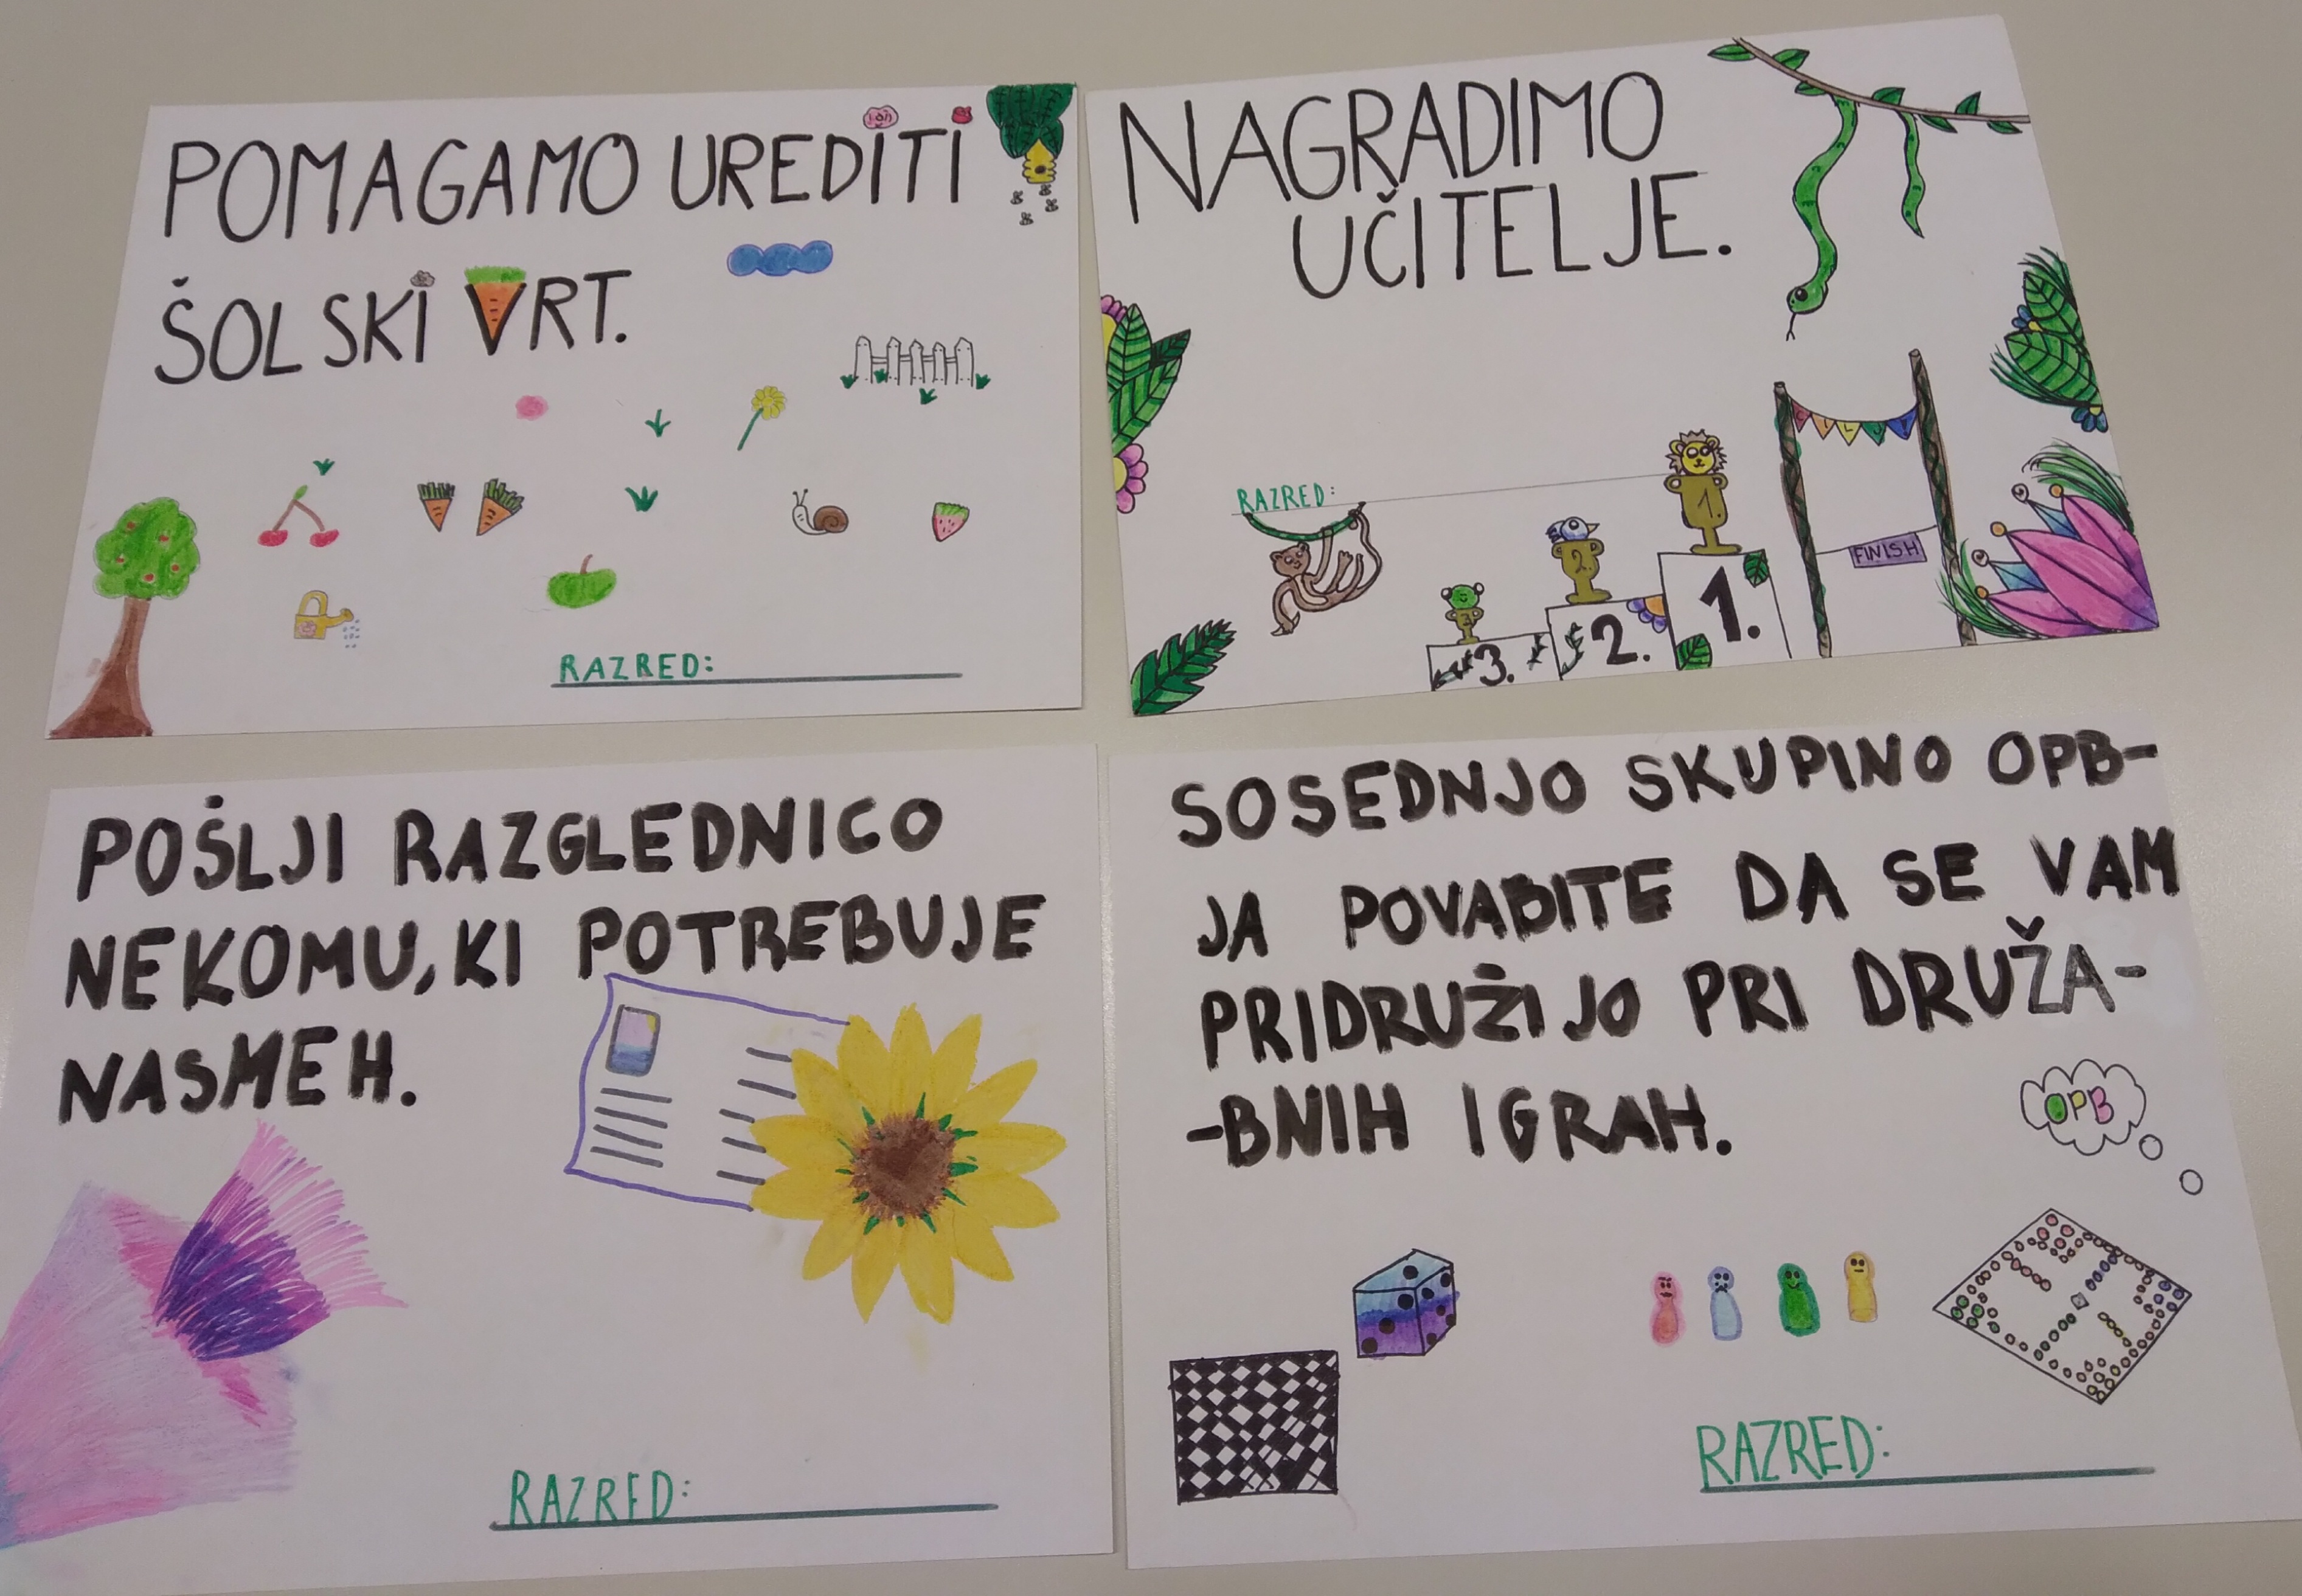 POMAGAMO UREDITI
ŠOLSKI VRT.
RAZRED:
NAGRADIMO
UČITELJE.
RAZRED:
1.
2.
3.
1.
2.
FINISH
POŠLJI RAZGLEDNICO
NEKOMU, KI POTREBUJE
NASMEH.
RAZRED:
SOSEDNJO SKUPINO OPB-
JA POVABITE DA SE VAM
PRIDRUŽIJO PRI DRUŽA-
-BNIH IGRAH.
OPB
RAZRED: